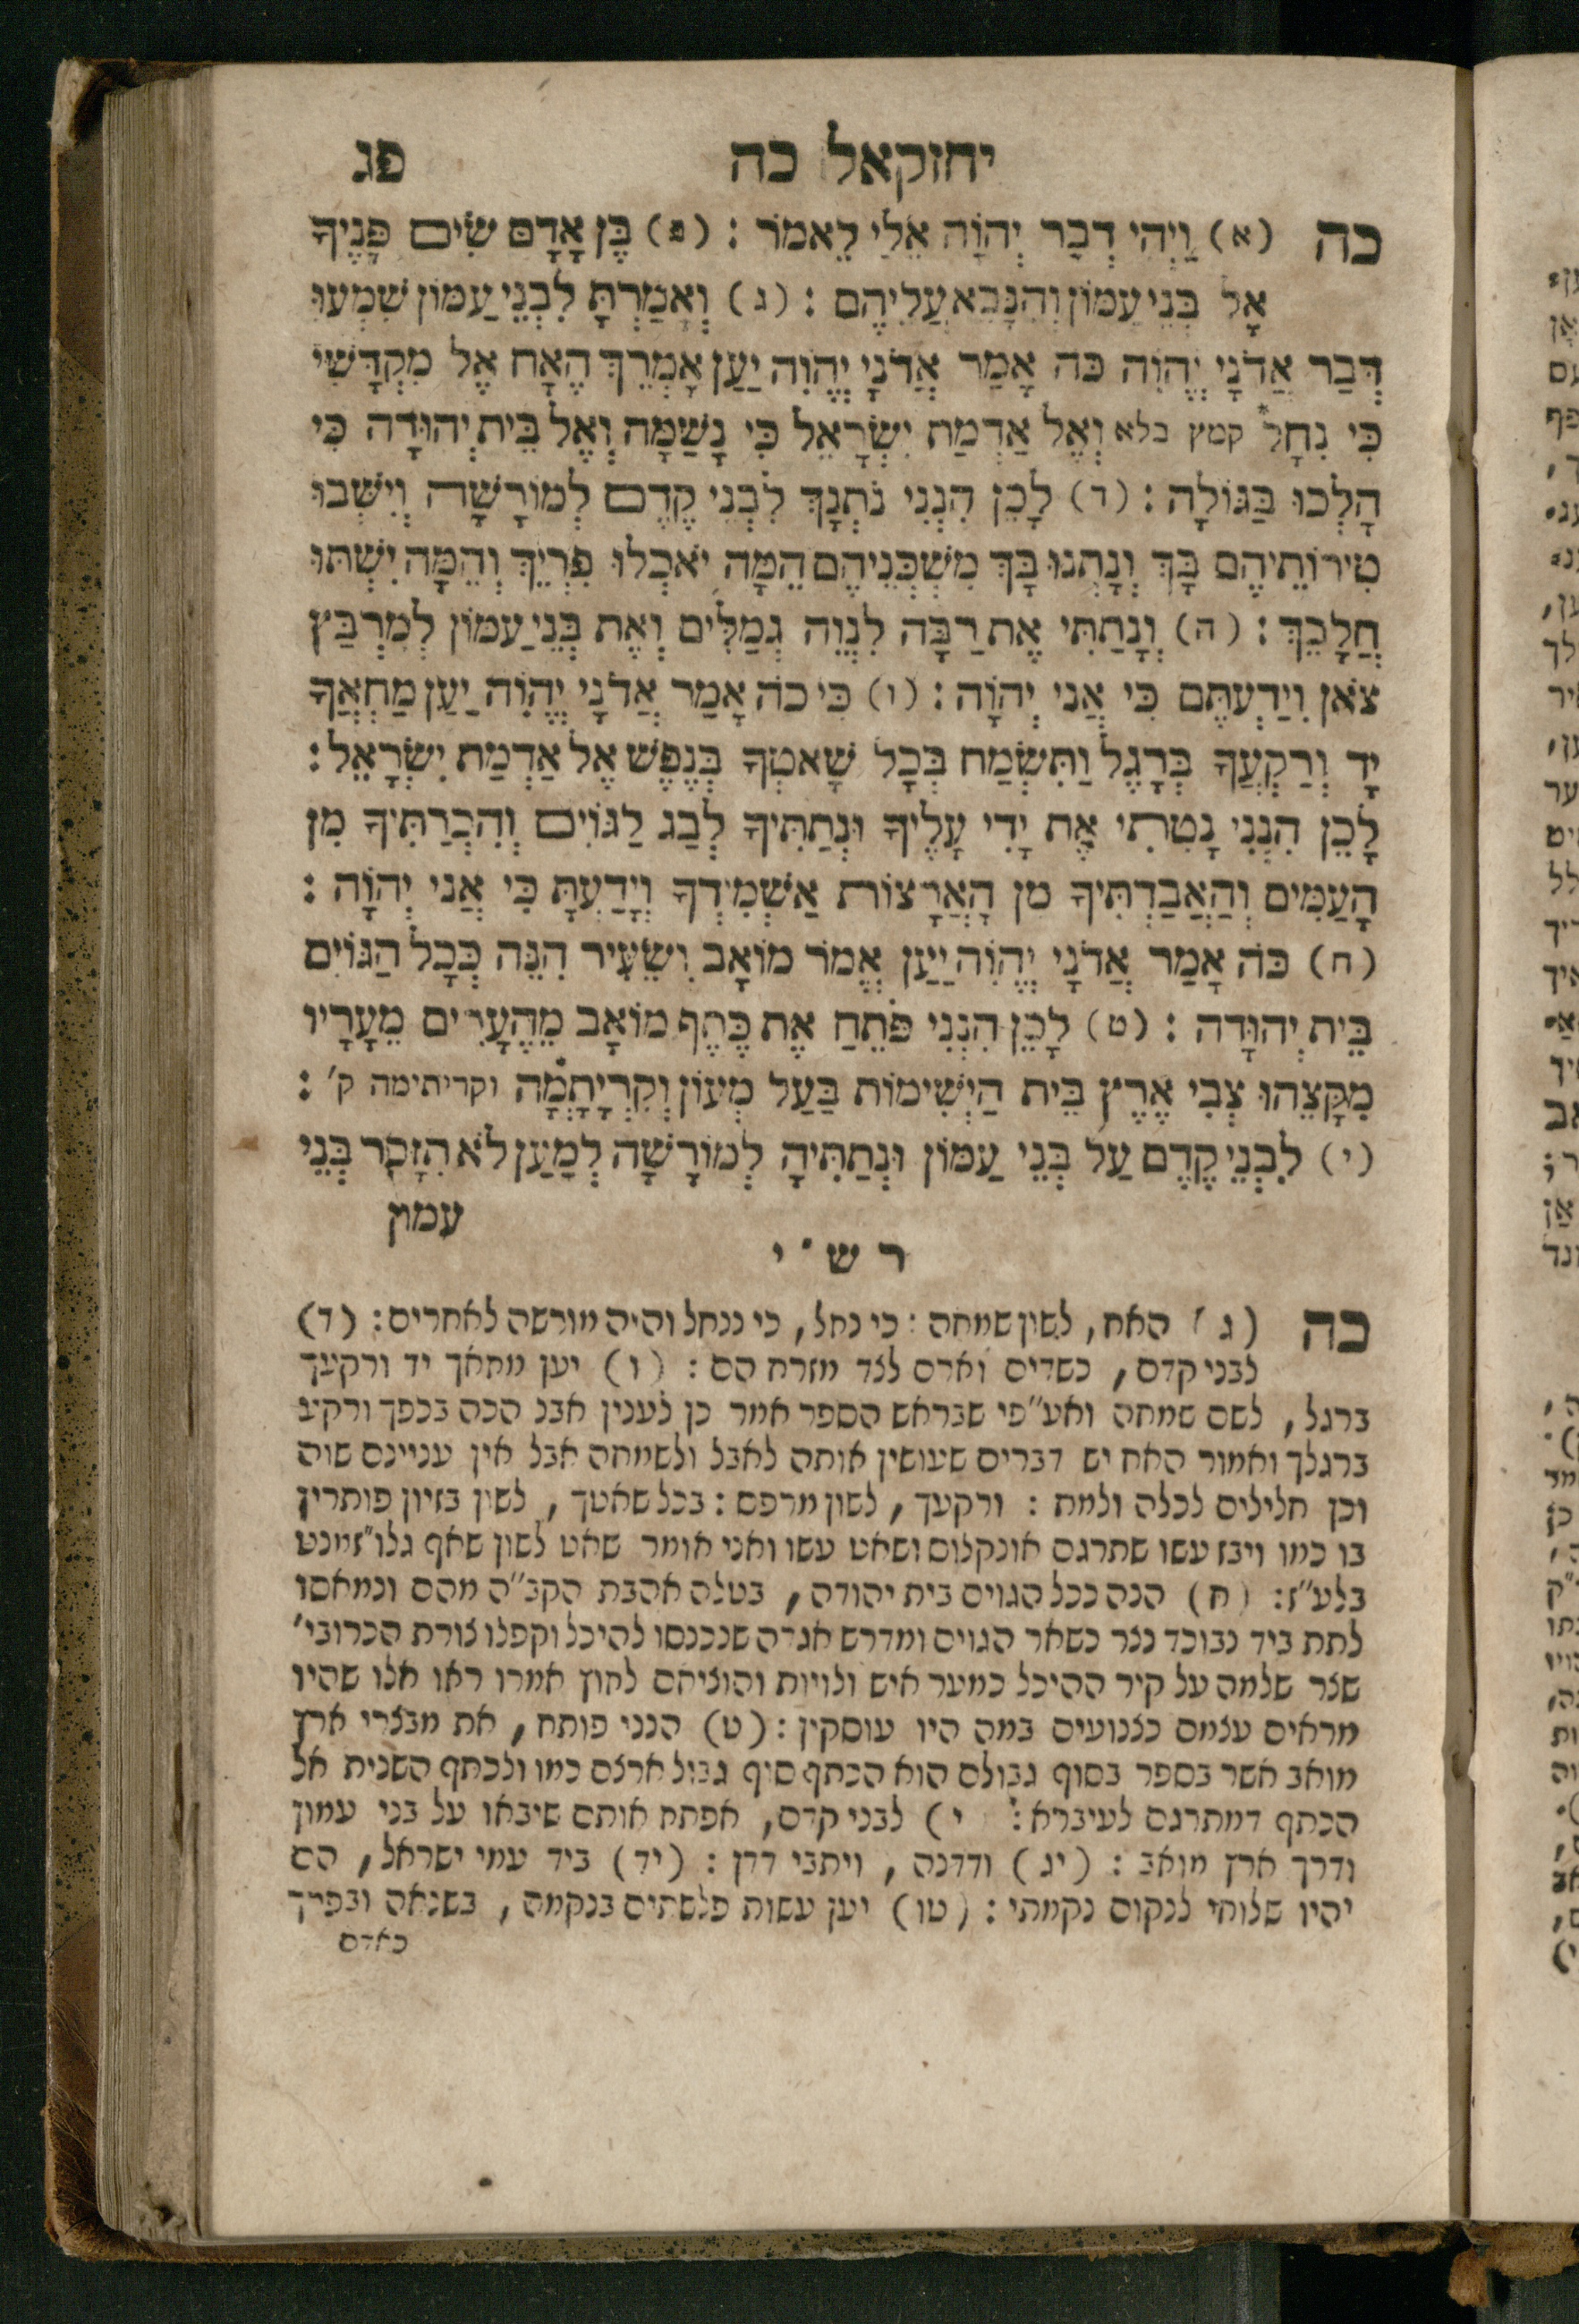 יחזקאל כה פג
כה (א) וַיְהִי דְבַר יְהוָֹה אֵלַי לֵאמֹר : (ב) בֶּן אָדָם שִׂים פָּנֶיךָ
אֶל בְּנֵי עַמּוֹן וְהִנָּבֵא עֲלֵיהֶם : (ג) וְאָמַרְתָּ לִבְנֵי עַמּוֹן שִׁמְעוּ
דְּבַר אֲדֹנָי יֱהֹוִה כֹּה אָמַר אֲדֹנָי יֱהֹוִה יַעַן אָמְרֵךְ הֶאָח אֶל מִקְדָּשִׁי
כִּי נִחָל* קמץ בלא וְאֶל אַדְמַת יִשְׂרָאֵל כִּי נָשַׁמָּה וְאֶל בֵּית יְהוּדָה כִּי
הָלְכוּ בַּגּוֹלָה : (ד) לָכֵן הִנְנִי נֹתְנָךְ לִבְנֵי קֶדֶם לְמוֹרָשָׁה וְיִשְּׁבוּ
טִירוֹתֵיהֶם בָּךְ וְנָתְנוּ בָּךְ מִשְׁכְּנֵיהֶם הֵמָּה יֹאכְלוּ פִרְיֵךְ וְהֵמָּה יִשְׁתּוּ
חֲלָבֵךְ : (ה) וְנָתַתִּי אֶת רַבָּה לִנְוֵה גְמַלִּים וְאֶת בְּנֵי עַמּוֹן לְמִרְבַּץ
צֹאן וִידַעְתֶּם כִּי אֲנִי יְהוָֹה : (ו) כִּי כֹה אָמַר אֲדֹנָי יֱהֹוִה יַעַן מַחְאֲךָ
יָד וְרַקְעֲךָ בְּרָגֶל וַתִּשְׂמַח בְּכָל שָׁאטְךָ בְּנֶפֶשׁ אֶל אַדְמַת יִשְׂרָאֵל :
לָכֵן הִנְנִי נָטִיתִי אֶת יָדִי עָלֶיךָ וּנְתַתִּיךָ לְבַג לַגּוֹיִם וְהִכְרַתִּיךָ מִן
הָעַמִּים וְהַאֲבַדְתִּיךָ מִן הָאֲרָצוֹת אַשְׁמִידְךָ וְיָדַעְתָּ כִּי אֲנִי יְהוָֹה :
(ח) כֹּה אָמַר אֲדֹנָי יֱהֹוִה יַעַן אֲמֹר מוֹאָב וְשֵׂעִיר הִנֵּה כְּכָל הַגּוֹיִם
בֵּית יְהוּדָה : (ט) לָכֵן הִנְנִי פֹתֵחַ אֶת כֶּתֶף מוֹאָב מֵהֶעָרִים מֵעָרָיו
מִקָּצֵהוּ צְבִי אֶרֶץ בֵּית הַיְשִׁימוֹת בַּעַל מְעוֹן וְקִרְיָתָמָה וקריתימה ק' :
(י) לִבְנֵי קֶדֶם עַל בְּנֵי עַמּוֹן וּנְתַתִּיהָ לְמוֹרָשָׁה לְמַעַן לֹא תִזָּכֵר בְּנֵי
עמון
ר ש " י
כה (ג) האח, לשון שמחה : כי נחל, כי ננחל והיה מורשה לאחרים: (ד)
לבני קדם, כשדים וארם לצד מזרח הם : (ו) יען מחאך יד ורקעך
ברגל, לשם שמחה ואע"פי שבראש הספר אמר כן לענין אבל הכה בכפך ורקע
ברגלך ואמור האח יש דברים שעושין אותה לאבל ולשמחה אבל אין עניינם שוה
וכן חלילים לכלה ולמת : ורקעך, לשון מרפס: בכל שאטך, לשון בזיון פותרין
בו כמו ויבז עשו שתרגם אונקלוס ושאט עשו ואני אומר שאט לשון שאף גלו"זמנט
בלע"ז: (ח) הנה ככל הגוים בית יהודה, בטלה אהבת הקב"ה מהם ונמאסו
לתת ביד נבוכד נצר כשאר הגוים ומדרש אגדה שנכנסו להיכל וקפלו צורת הכרובי'
שצר שלמה על קיר ההיכל כמער איש ולויות והוציאם לחוץ אמרו ראו אלו שהיו
מראים עצמם כצנועים במה היו עוסקין : (ט) הנני פותח, את מבצרי ארץ
מואב אשר בספר בסוף גבולם הוא הכתף סוף גבול ארצם כמו ולכתף השנית אל
הכתף דמתרגם לעיברא : י) לבני קדם, אפתח אותם שיבאו על בני עמון
ודרך ארץ מואב : (יג) ודדנה, ויתבי דרן : (יד) ביד עמי ישראל, הם
יהיו שלוחי לנקום נקמתי : (טו) יען עשות פלשתים בנקמה, בשנאה ובפרך
כאדם